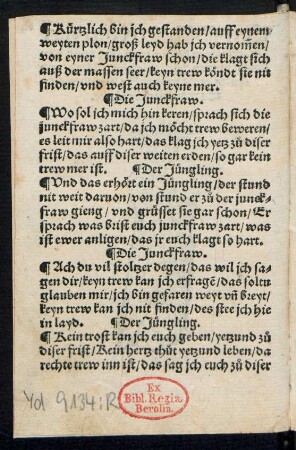 ¶ Kürtzlich bin jch gestanden/auff eynem
weyten plon/groß leyd hab jch vernom̃en/
von eyner Junckfraw schon/die klagt sich
auß der massen seer/keyn trew köndt sie nit
finden/vnd west auch keyne mer.
¶ Die Junckfraw.
¶ Wo sol jch mich hin keren/sprach sich die
junckfraw zart/da jch möcht trew beweren/
es leit mir also hart/das klag jch yetz zů diser
frist/das auff diser weiten erden/so gar kein
trew mer ist. ¶ Der Jüngling.
¶ Vnd das erhört ein Jüngling/der stund
nit weit daruon/von stund er zů der junck-
fraw gieng/vnd grüsset sie gar schon/Er
sprach was brist euch junckfraw zart/was
ist ewer anligen/das jr euch klagt so hart.
¶ Die Junckfraw.
¶ Ach du vil stoltzer degen/das wil jch sa-
gen dir/keyn trew kan jch erfragẽ/das soltu
glauben mir/jch bin gefaren weyt vñ breyt/
keyn trew kan jch nit finden/des stee jch hie
in layd. ¶ Der Jüngling.
¶ Kein trost kan jch euch geben/yetzund zů
diser frist/Kein hertz thůt yetzund leben/da
rechte trew inn ist/das sag jch euch zů diser
Yd 9134:R
Ex
Bibl. Regia
Berolin.